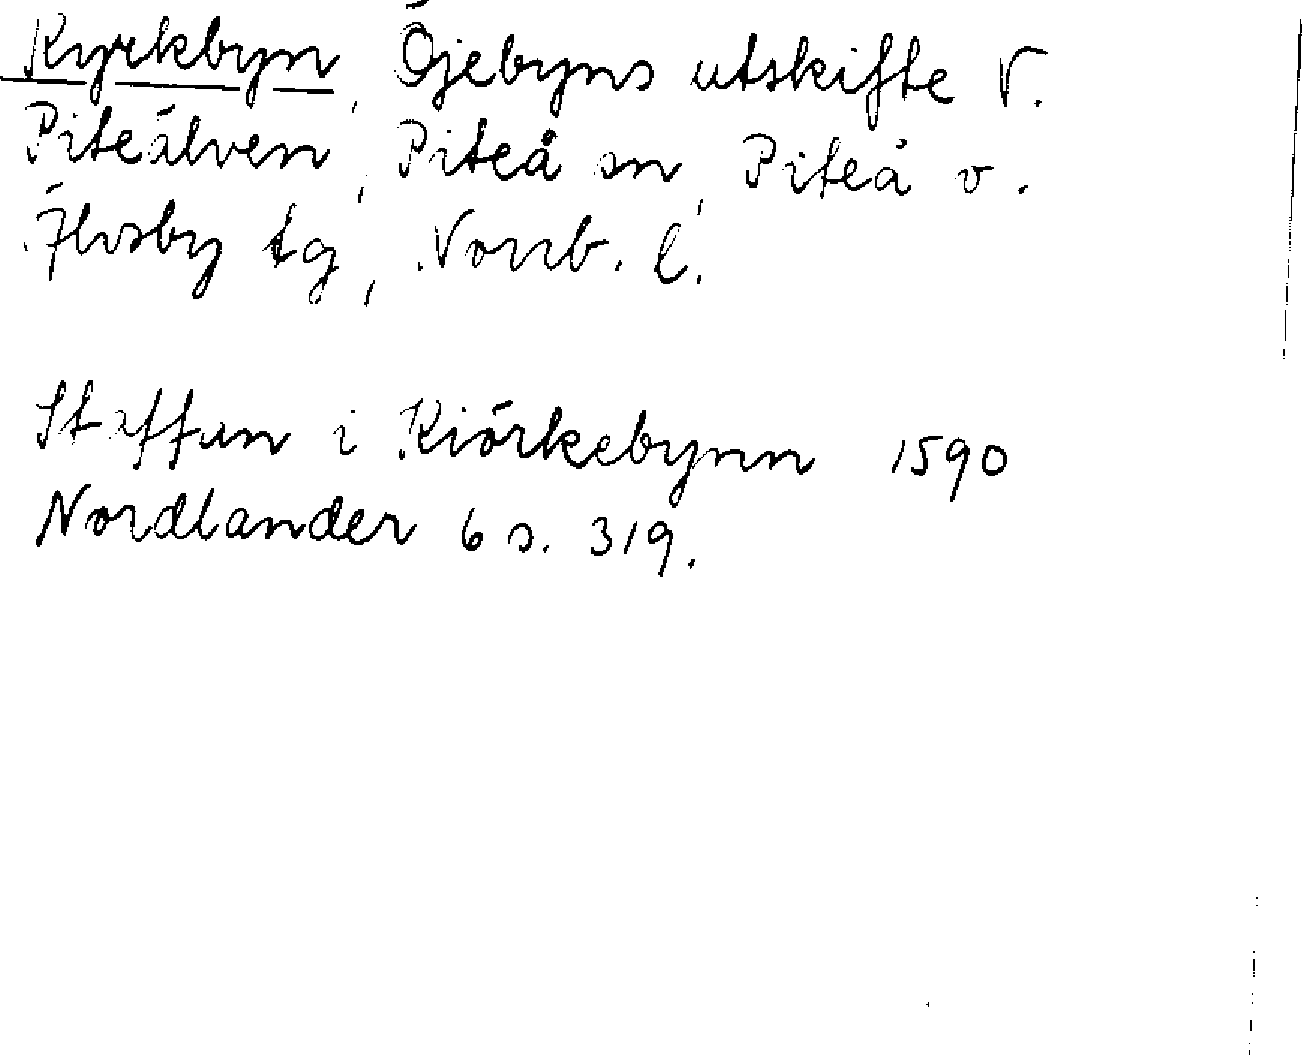 Kyrkbyn, Öjebyns utskifte V.
Piteälven, Piteå sn, Piteå o.
Älvsby tg, Norrb. l.
Staffan i Kiörkebynn 1590
Nordlander 6 s. 319.